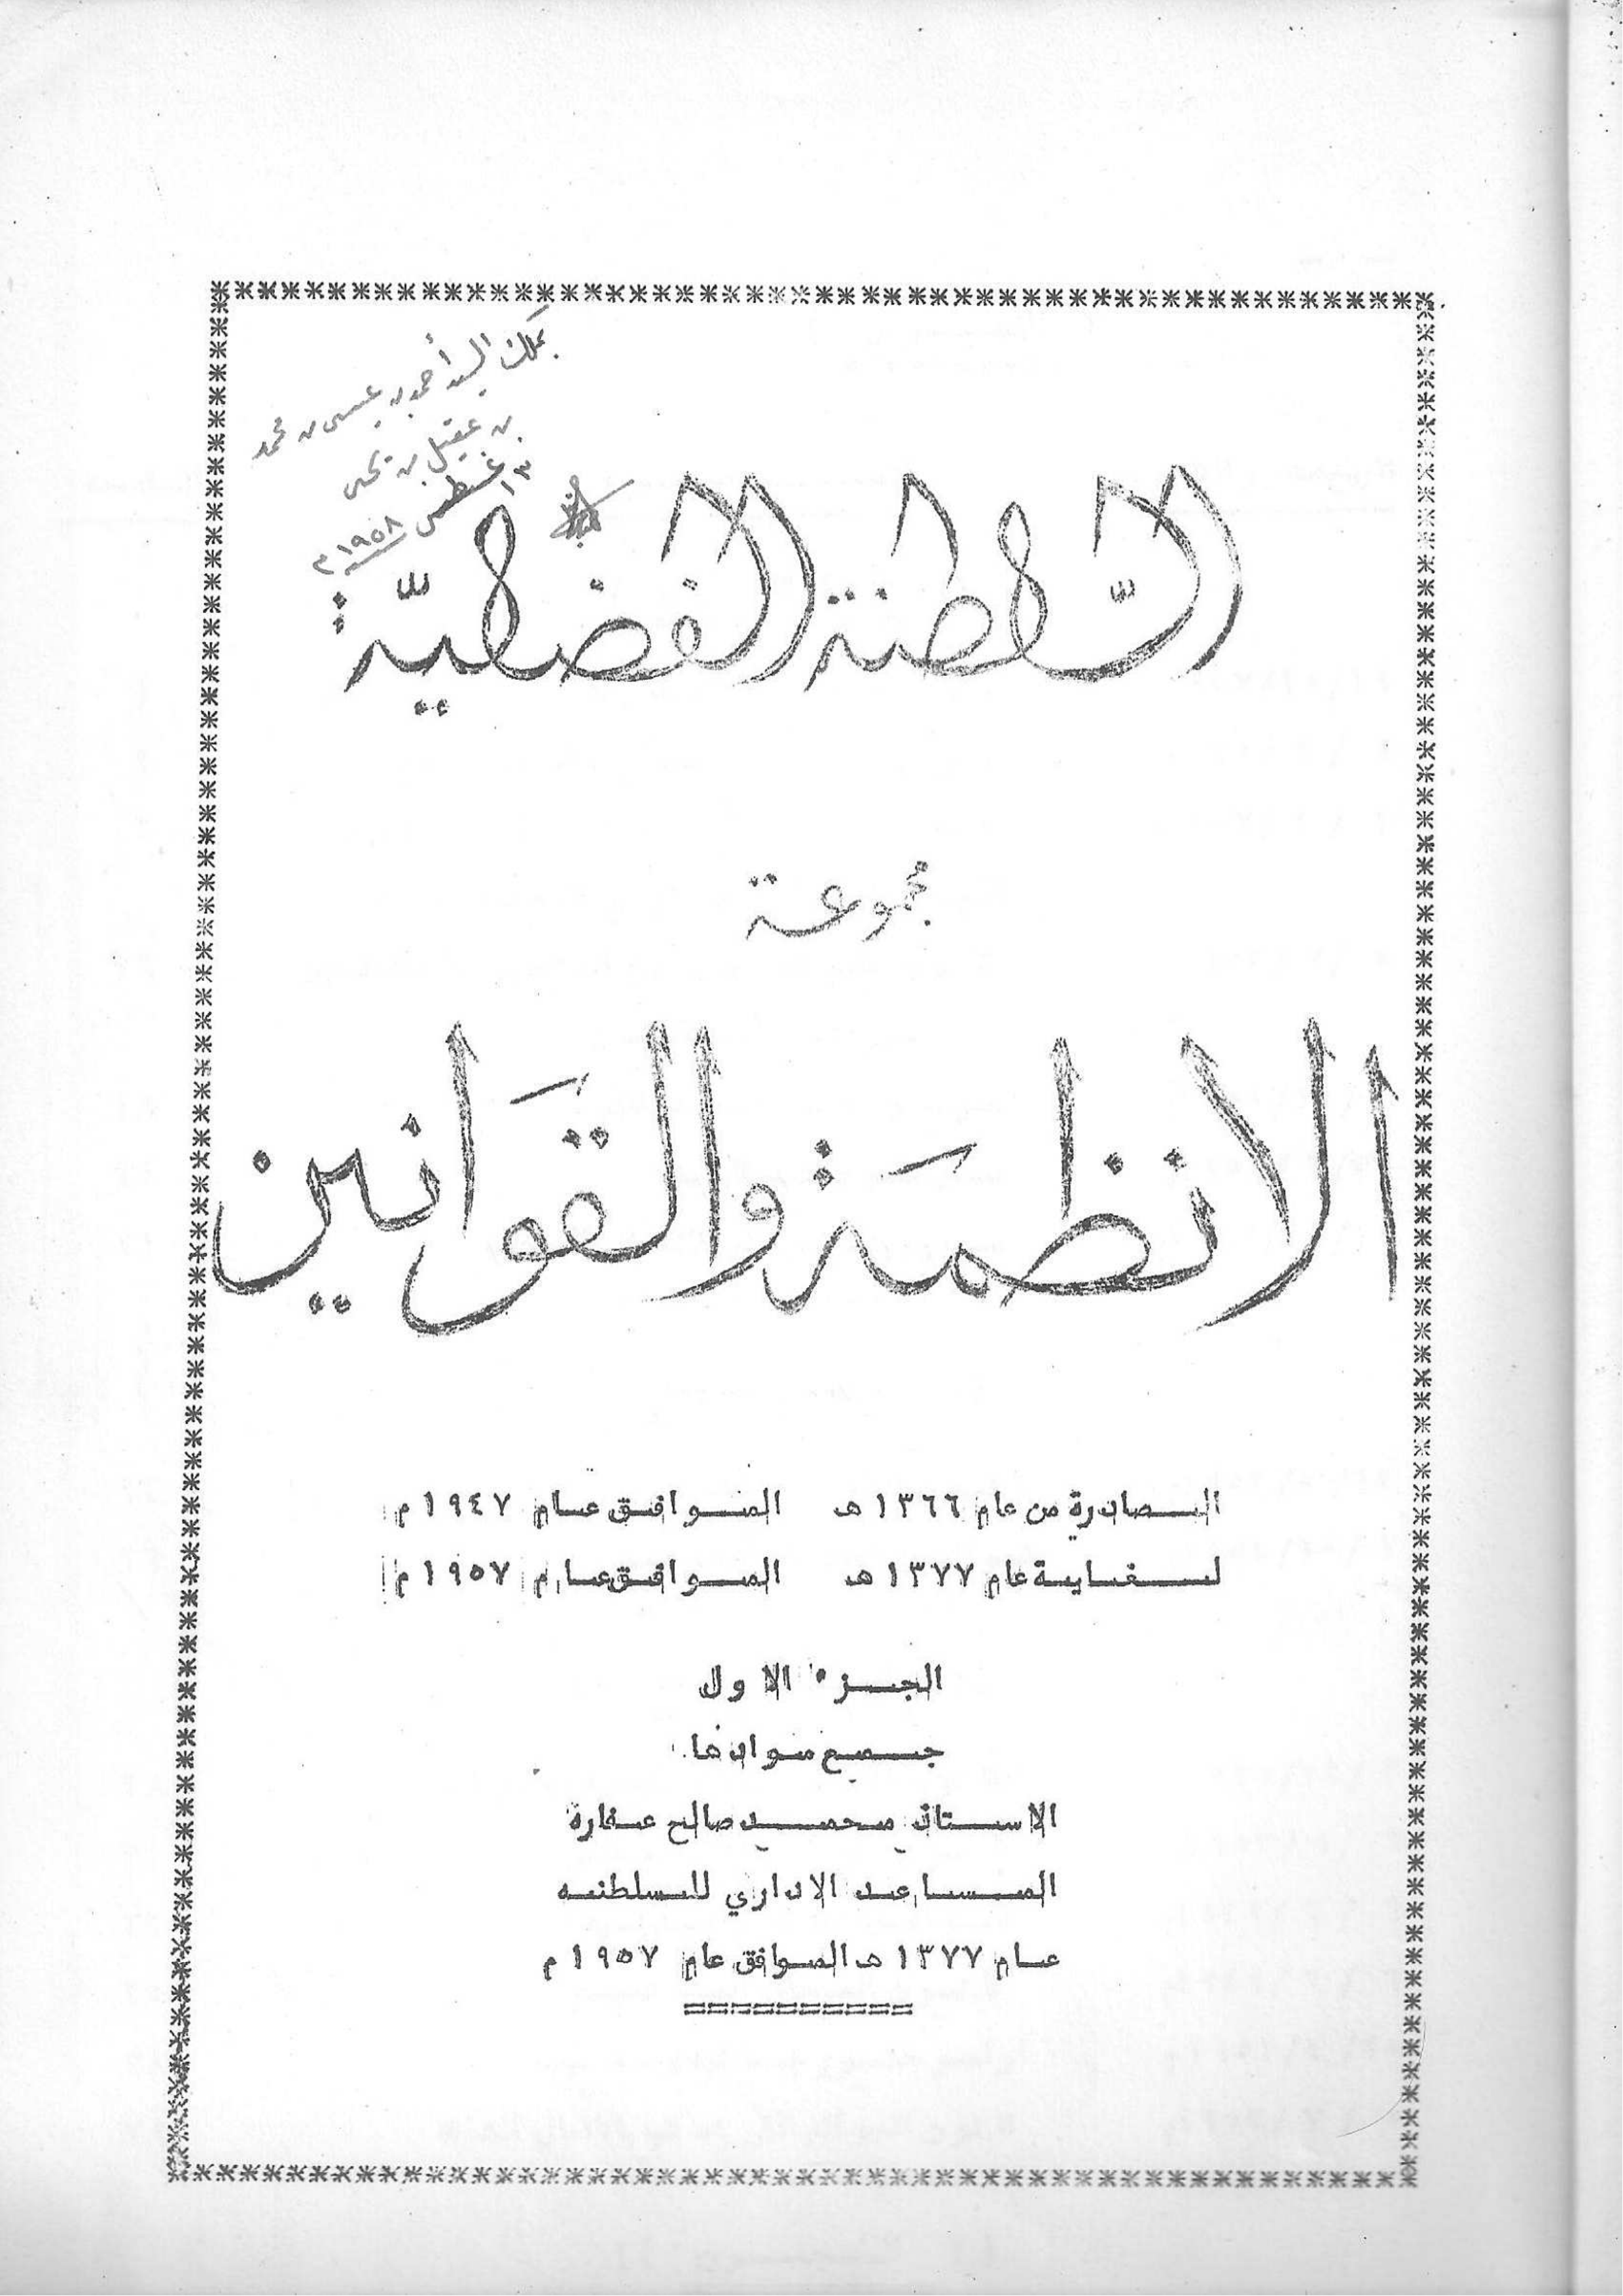 بملك السيد أحمد بن عيسى بن محمد
بن عقيل بن يحيى
١٣ غسطس ١٩٥٨م
السّلطنة الفضليّة
مجموعة
الانظمَة والقوَانين
الصادرة من عام ١٣٦٦ هـ الموافق عام ١٩٤٧ م
لغاية عام ١٣٧٧ هـ الموافق عام ١٩٥٧ م
الجزء الاول
جمع موادها
الاستاذ محمد صالح عفارة
المساعد الاداري للسلطنه
عام ١٣٧٧ هـ الموافق عام ١٩٥٧ م
==========